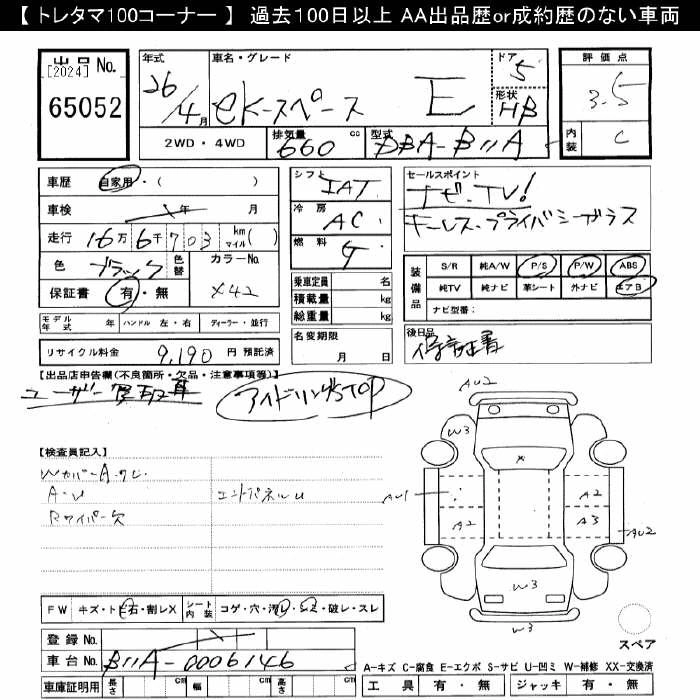 【 トレタマ100コーナー 】 過去100日以上 AA出品歴or成約歴のない車両
出品 No.
[2024]
65052
年式
26/4月
車名・グレード
eKスペース E
ドア 5
形状 HB
評価点
3.5
内装 C
2WD ・ 4WD
排気量 660 cc
型式 DBA-B11A
車歴 自家用・( )
車検 年 月
走行 16万6千703 km マイル( )
色 ブラック 色替
カラーNo. X42
保証書 有・無
モデル年式 年 ハンドル 左・右 ディーラー・並行
リサイクル料金 9,190 円 預託済
シフト IAT
冷房 AC
燃料 G
乗車定員 名
積載量 kg
総重量 kg
名変期限 月 日
セールスポイント
ナビ・TV!
キーレス・プライバシーガラス
装備品
S/R 純A/W P/S P/W ABS
純TV 純ナビ 革シート 外ナビ エアB
ナビ型番:
後日品
保証書
【出品店申告欄(不良箇所・欠品・注意事項等)】
ユーザー買取車
アイドリングSTOP
【検査員記入】
A・U
エンドパネルU
Rワイパー欠
AU2
W3
×
AU1
A2
A2
A3
AU2
W3
W3
FW キズ・トビ石・割レX
シート内装 コゲ・穴・汚レ・シミ・破レ・スレ
スペア
登録 No.
車台 No. B11A-0006146
車庫証明用 長さ cm 幅 cm 高さ cm
A-キズ C-腐食 E-エクボ S-サビ U-凹ミ W-補修 XX-交換済
工具 有・無 ジャッキ 有・無